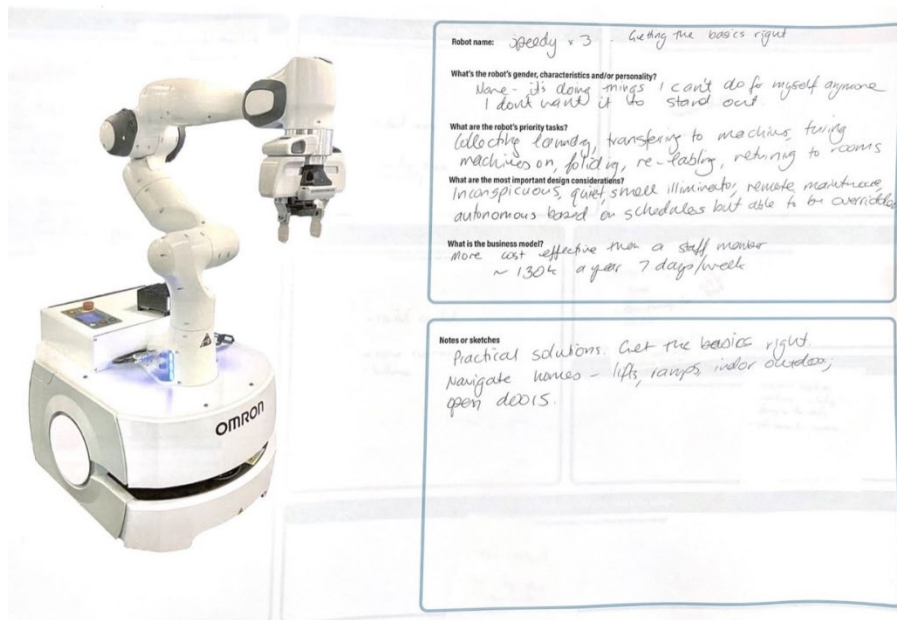 Robot name: Speedy x 3 . Getting the basics right
What's the robot's gender, characteristics and/or personality?
None - it's doing things I can't do for myself anymore
I dont want it to stand out
What are the robot's priority tasks?
Collecting laundry, transfering to machine, turing
machines on, folding, re-labling, returning to rooms
What are the most important design considerations?
Inconspicuous, quiet, small, remote
autonomous based on schedules but able to be overridden
What is the business model?
More cost effective then a staff member
~ 130k a year 7 days/week
Notes or sketches
Practical solutions. Get the basics right.
Navigate homes - lifts, ramps, indor outdoor,
open doors.
OMRON